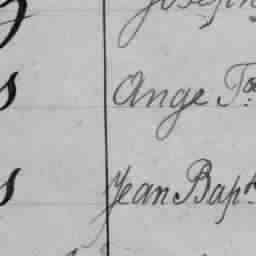 Joseph
Ange T.
Jean Bapt